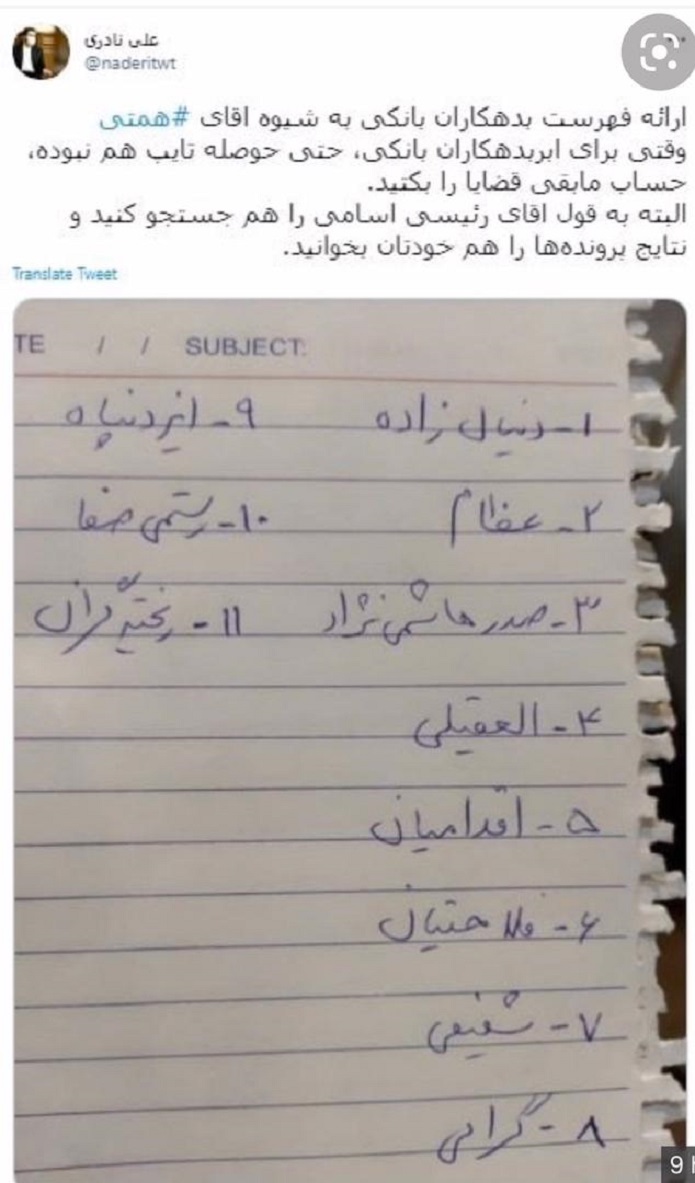 علی نادری
@naderitwt
ارائه فهرست بدهکاران بانکی به شیوه اقای #همتی
وقتی برای ابربدهکاران بانکی، حتی حوصله تایپ هم نبوده،
حساب مابقی قضایا را بکنید.
البته به قول اقای رئیسی اسامی را هم جستجو کنید و
نتایج پرونده‌ها را هم خودتان بخوانید.
Translate Tweet
TE / / SUBJECT:
۱- دنیال زاده
۲- عظام
۳- صدر هاشمی نژاد
۴- العقیلی
۵- اقدامیان
۶- فلاحتیان
۷- شفیعی
۸- گرامی
۹- ایزدپناه
۱۰- رستمی صفا
۱۱- ریخته گران
9